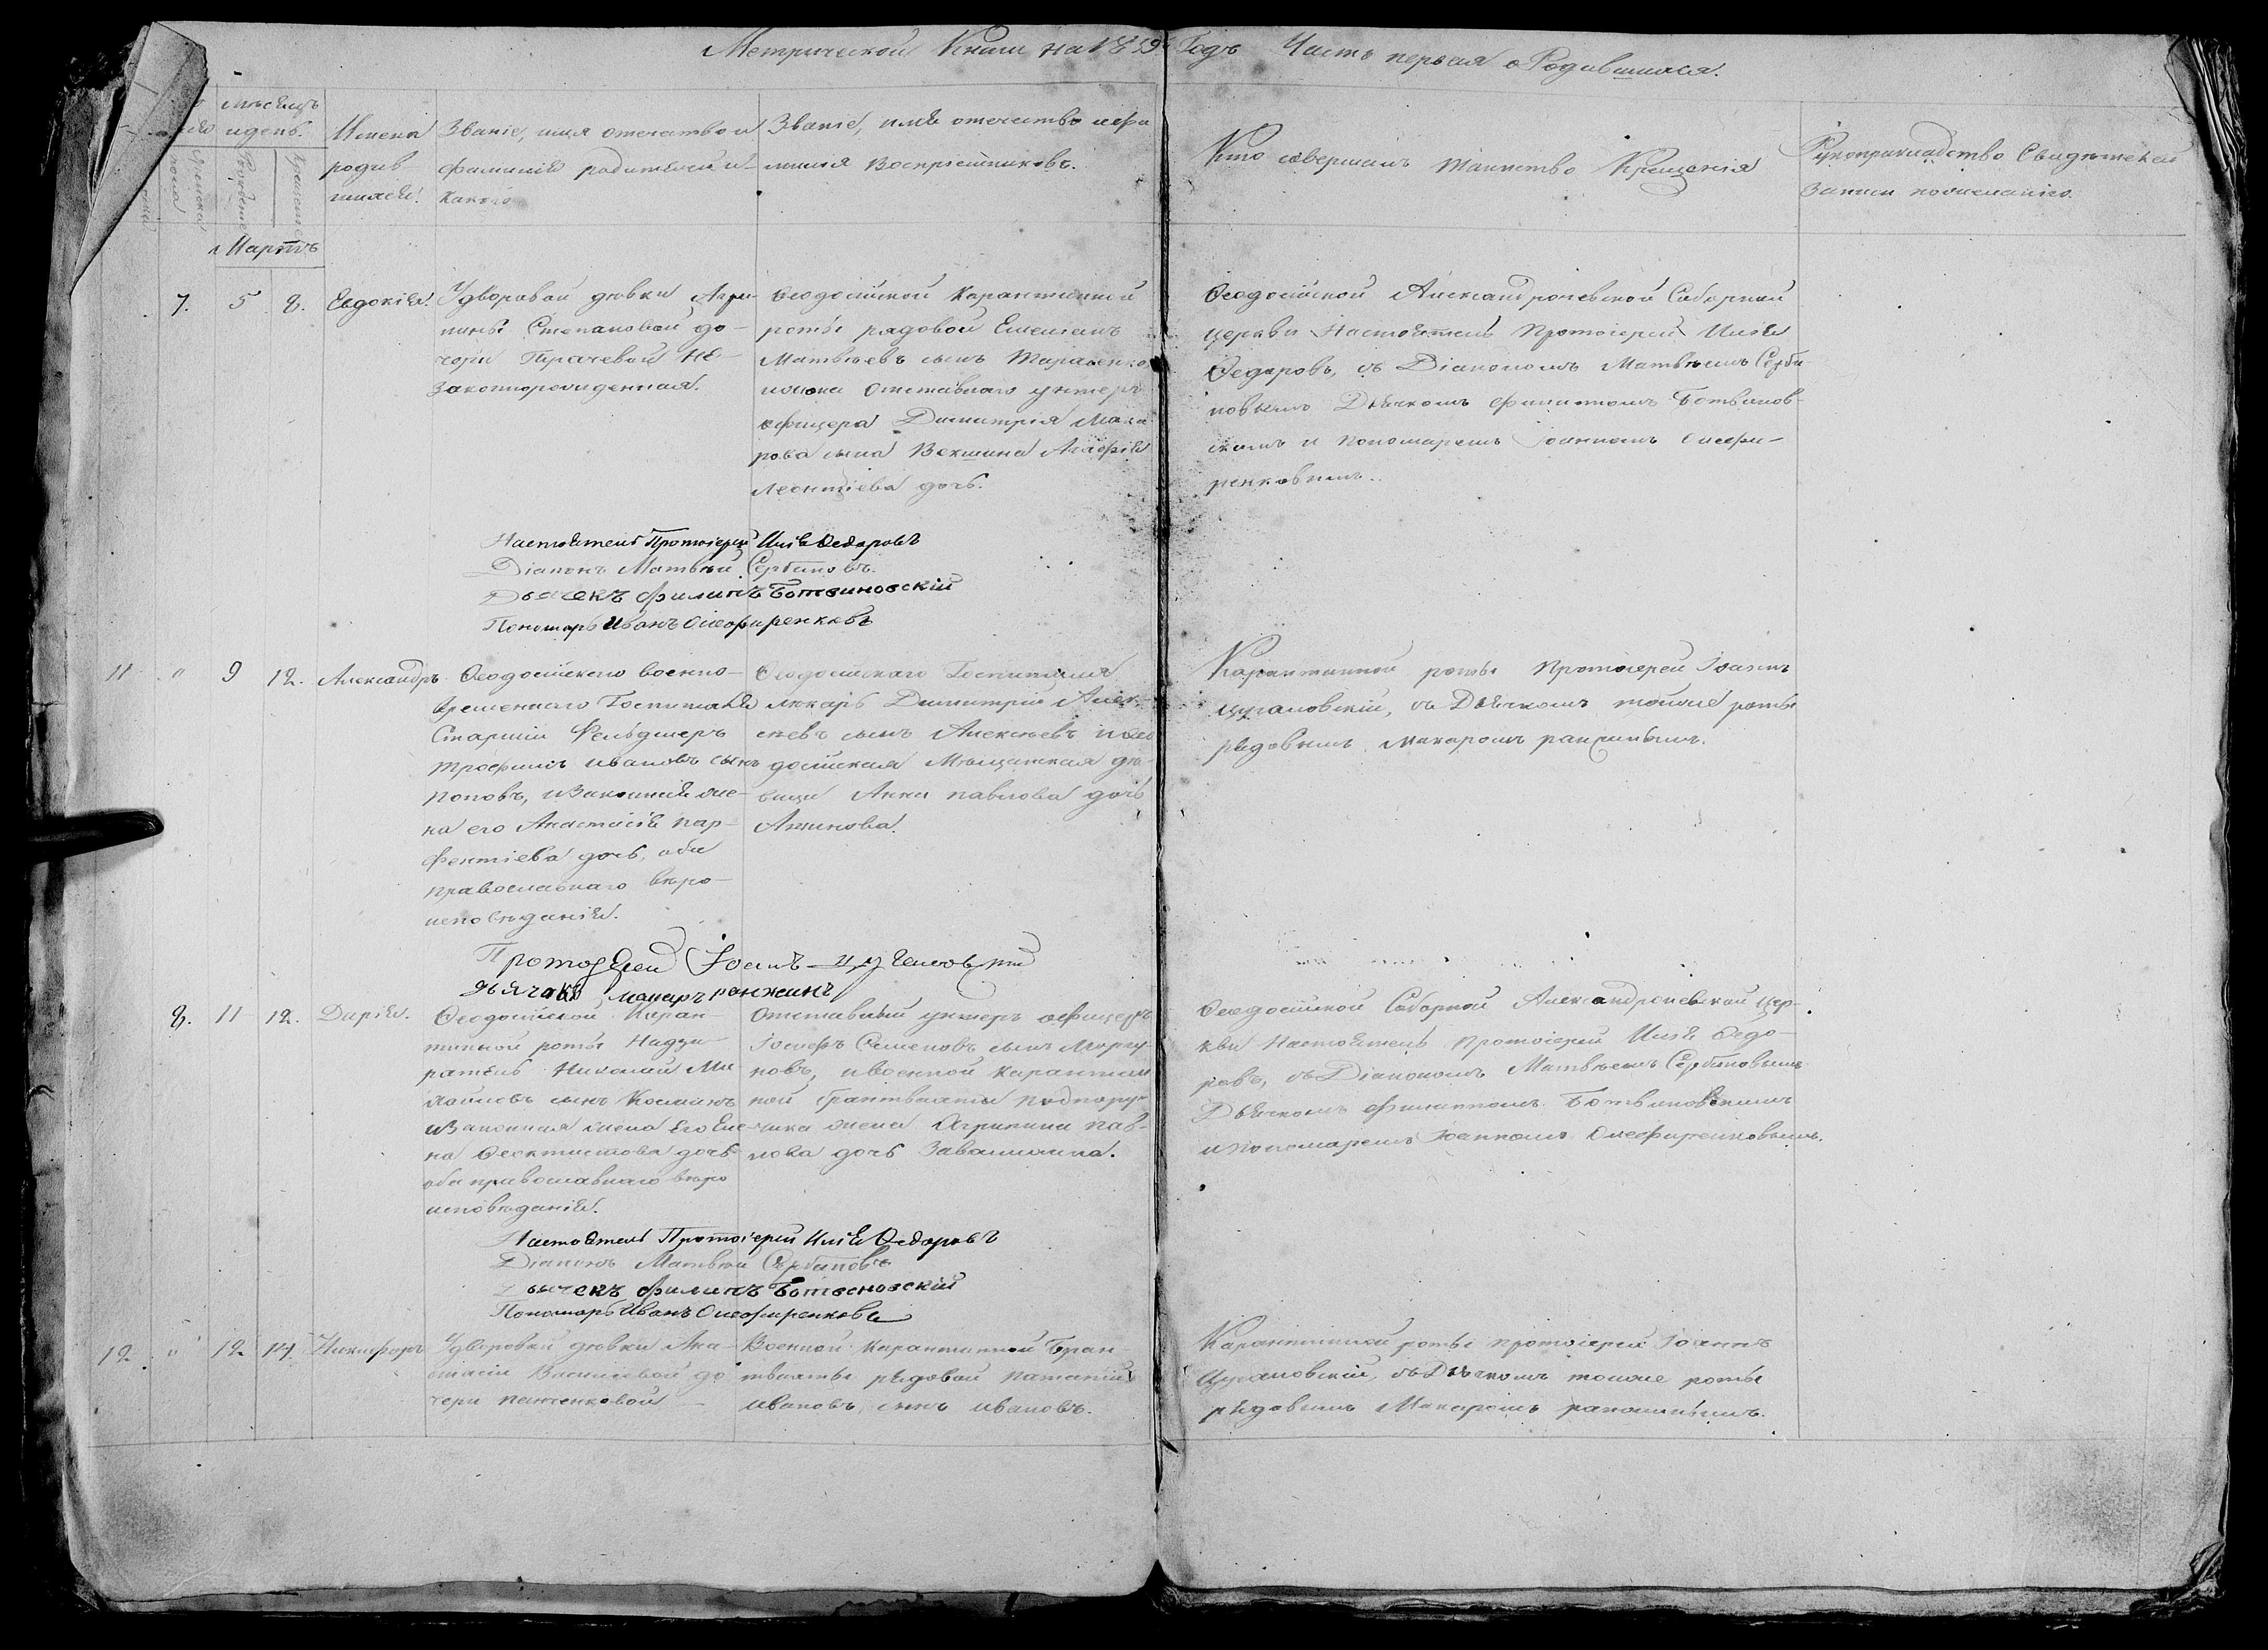 Метрической Книги на 1859 Годъ Часть первая о Родившихся.
мѣсяцъ
и день.
Имена
родив-
шихся.
Званіе, имя отечество и
фамилія родителей и
какого
Званіе, имя отечество и фа-
милія Воспріемниковъ.
Кто совершалъ таинство Крещенія
Рукоприкладство Свидѣтелей
записи по желанію.
Мартъ
7. 5 8. Евдокія.
У дворовой дѣвки Агри-
пины Степановой до-
чери Пугачевой не-
законнорожденная.
Ѳеодосійской Карантинной
роты рядовой Емельянъ
Матвѣевъ сынъ Тараненко
и жена отставнаго унтеръ
офицера Димитрія Мака-
рова сына Векшина Агафія
Леонтіева дочь.
Ѳеодосійской Александроневской Соборной
церкви Настоятель Протоіерей Илія
Ѳедоровъ, съ Діакономъ Матвѣемъ Серби-
новымъ Дьячкомъ Филиппомъ Ботвинов-
скимъ и пономаремъ Іоанномъ Олефи-
ренковымъ.
Настоятель Протоіерей Илія Ѳедоровъ
Діаконъ Матвѣй Сербиновъ.
Дьячекъ Филипъ Ботвиновскій
Пономарь Иванъ Олефиренковъ
11 " 9 12. Александръ
Ѳеодосійскаго военно-
временнаго Госпиталя
Старшій Фельдшеръ
Трофимъ Ивановъ сынъ
Поповъ, и законная же-
на его Анастасія Пар-
фентіева дочь, оба
православнаго вѣро-
исповѣданія.
Ѳеодосійскаго Госпиталя
лѣкарь Димитрій Алек-
сѣевъ сынъ Алексѣевъ и Ѳео-
досійская Мѣщанская дѣ-
вица Анна Павлова дочь
Карантинной роты Протоіерей Іоаннъ
Цугаловскій, съ Дьячкомъ тойже роты
рядовымъ Макаромъ
Протоіерей Іоаннъ
дьячокъ Макаръ ранжинъ
8. 11 12. Дарія.
Ѳеодосійской Каран-
тинной роты Надзи-
ратель Николай Ми-
хайловъ сынъ
и законная жена его Еле-
на Ѳеоктистова дочь
оба православнаго вѣро
исповѣданія.
Отставный унтеръ офицеръ
Іосифъ Семеновъ сынъ Моргу-
новъ, и военной карантин
ной брантвахты подпору-
чика жена Агрипина Пав-
лова дочь Завалишина.
Ѳеодосійской Соборной Александроневской Цер-
кви Настоятель Протоіерей Илія Ѳедо-
ровъ, съ Діакономъ Матвѣемъ Сербиновымъ
Дьячкомъ Филиппомъ Ботвиновскимъ
и пономаремъ Іоанномъ Олефиренковымъ.
Настоятель Протоіерей Илія Ѳедоровъ
Діаконъ Матвѣй Сербиновъ
Дьячекъ Филипъ Ботвиновскій
Пономарь Иванъ Олефиренковъ
12. " 12 14. Никифоръ
У дворовой дѣвки Ана-
стасіи Васильевой до
чери Панченковой
Военной Карантинной Бран-
твахты рядовой
Ивановъ сынъ Ивановъ.
Карантинной роты протоіерей Іоаннъ
Цугаловскій, съ Дьячкомъ тойже роты
рядовымъ Макаромъ